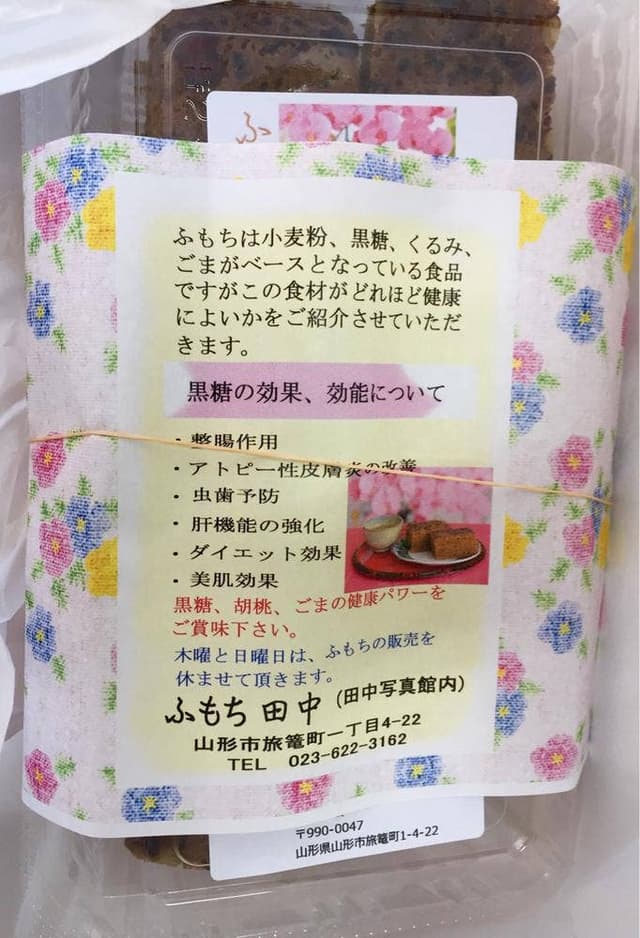 ふ
ふもちは小麦粉、黒糖、くるみ、
ごまがベースとなっている食品
ですがこの食材がどれほど健康
によいかをご紹介させていただ
きます。
黒糖の効果、効能について
・整腸作用
・アトピー性皮膚炎の改善
・虫歯予防
・肝機能の強化
・ダイエット効果
・美肌効果
黒糖、胡桃、ごまの健康パワーを
ご賞味下さい。
木曜と日曜日は、ふもちの販売を
休ませて頂きます。
ふもち 田中 (田中写真館内)
山形市旅篭町一丁目4-22
TEL 023-622-3162
〒990-0047
山形県山形市旅篭町1-4-22